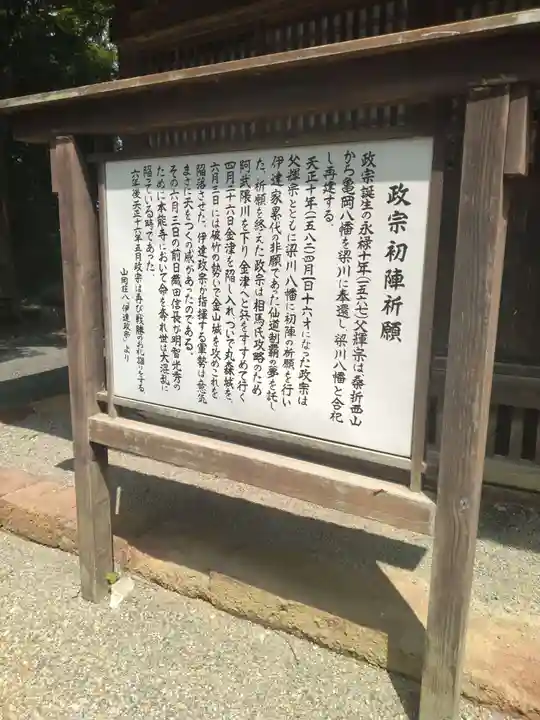 政宗初陣祈願
政宗誕生の永禄十年(一五六七)父輝宗は桑折西山
から亀岡八幡を梁川に奉遷し、梁川八幡と合祀
し再建する。
天正十年(一五八二)四月一日十六才になった政宗は
父輝宗とともに梁川八幡に初陣の祈願を行い
伊達家累代の非願であった仙道制覇の夢を託し
た。祈願を終えた政宗は相馬氏攻略のため
阿武隈川を下り金津へと兵をすすめて行く
四月二十六日金津を陥し入れ、ついで丸森城を、
六月三日には破竹の勢いで金山城を攻めこれを
陥落させた。伊達政宗が指揮する軍勢は意気
まさに天をつくの感があったのである。
その六月三日の前日織田信長が明智光秀の
ために本能寺において命を奪れ世は大混乱に
陥っている時であった。
六年後天正十六年五月政宗は再び戦勝のお礼詣りをする。
山岡荘八「伊達政宗」より